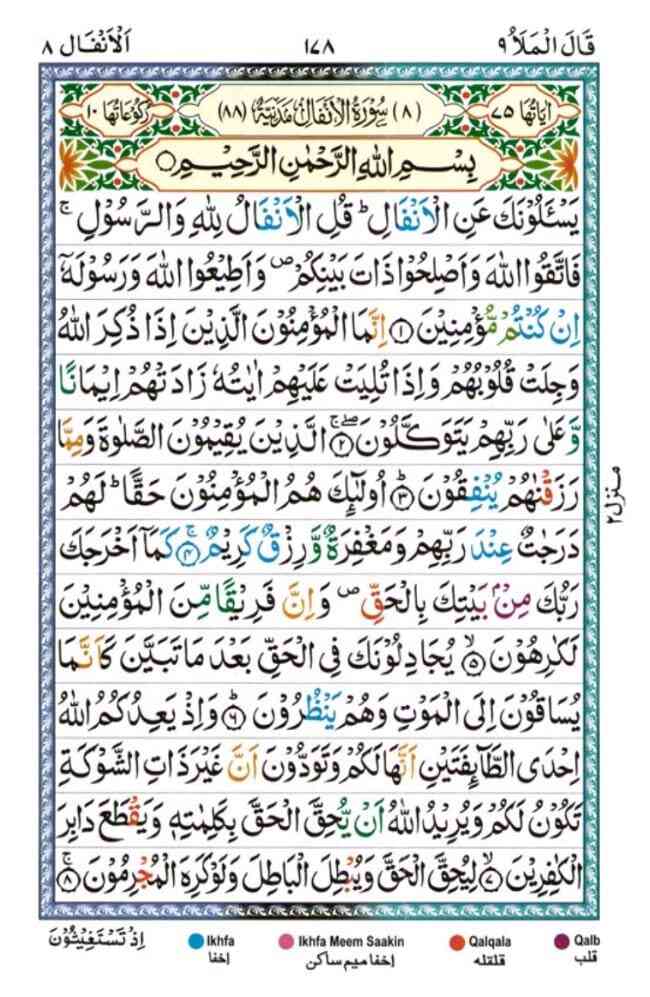 قَالَ الْمَلَاُ ٩
١٧٨
اَلْاَنْفَال ٨
اٰيَاتُهَا ٧٥
(٨) سُوْرَةُ الْاَنْفَالِ مَدَنِيَّةٌ (٨٨)
رُكُوْعَاتُهَا ١٠
بِسْمِ اللّٰهِ الرَّحْمٰنِ الرَّحِيْمِ ○
يَسْـَٔلُوْنَكَ عَنِ الْاَنْفَالِ ؕ قُلِ الْاَنْفَالُ لِلّٰهِ وَالرَّسُوْلِ ۚ
فَاتَّقُوا اللّٰهَ وَاَصْلِحُوْا ذَاتَ بَيْنِكُمْ ۪ وَاَطِيْعُوا اللّٰهَ وَرَسُوْلَهٗۤ
اِنْ كُنْتُمْ مُّؤْمِنِيْنَ ۝۱ اِنَّمَا الْمُؤْمِنُوْنَ الَّذِيْنَ اِذَا ذُكِرَ اللّٰهُ
وَجِلَتْ قُلُوْبُهُمْ وَاِذَا تُلِيَتْ عَلَيْهِمْ اٰيٰتُهٗ زَادَتْهُمْ اِيْمَانًا
وَّعَلٰى رَبِّهِمْ يَتَوَكَّلُوْنَ ۝۲ۚۖ الَّذِيْنَ يُقِيْمُوْنَ الصَّلٰوةَ وَمِمَّا
رَزَقْنٰهُمْ يُنْفِقُوْنَ ۝۳ؕ اُولٰٓئِكَ هُمُ الْمُؤْمِنُوْنَ حَقًّا ؕ لَهُمْ
دَرَجٰتٌ عِنْدَ رَبِّهِمْ وَمَغْفِرَةٌ وَّرِزْقٌ كَرِيْمٌ ۝۴ۚ كَمَاۤ اَخْرَجَكَ
رَبُّكَ مِنْۢ بَيْتِكَ بِالْحَقِّ ۪ وَاِنَّ فَرِيْقًا مِّنَ الْمُؤْمِنِيْنَ
لَكٰرِهُوْنَ ۝۵ۙ يُجَادِلُوْنَكَ فِى الْحَقِّ بَعْدَ مَا تَبَيَّنَ كَاَنَّمَا
يُسَاقُوْنَ اِلَى الْمَوْتِ وَهُمْ يَنْظُرُوْنَ ۝۶ؕ وَاِذْ يَعِدُكُمُ اللّٰهُ
اِحْدَى الطَّآئِفَتَيْنِ اَنَّهَا لَكُمْ وَتَوَدُّوْنَ اَنَّ غَيْرَ ذَاتِ الشَّوْكَةِ
تَكُوْنُ لَكُمْ وَيُرِيْدُ اللّٰهُ اَنْ يُّحِقَّ الْحَقَّ بِكَلِمٰتِهٖ وَيَقْطَعَ دَابِرَ
الْكٰفِرِيْنَ ۝۷ۙ لِيُحِقَّ الْحَقَّ وَيُبْطِلَ الْبَاطِلَ وَلَوْ كَرِهَ الْمُجْرِمُوْنَ ۝۸ۚ
منزل ٢
اِذْ تَسْتَغِيْثُوْنَ
Ikhfa
اخفا
Ikhfa Meem Saakin
اخفا ميم ساكن
Qalqala
قلقله
Qalb
قلب